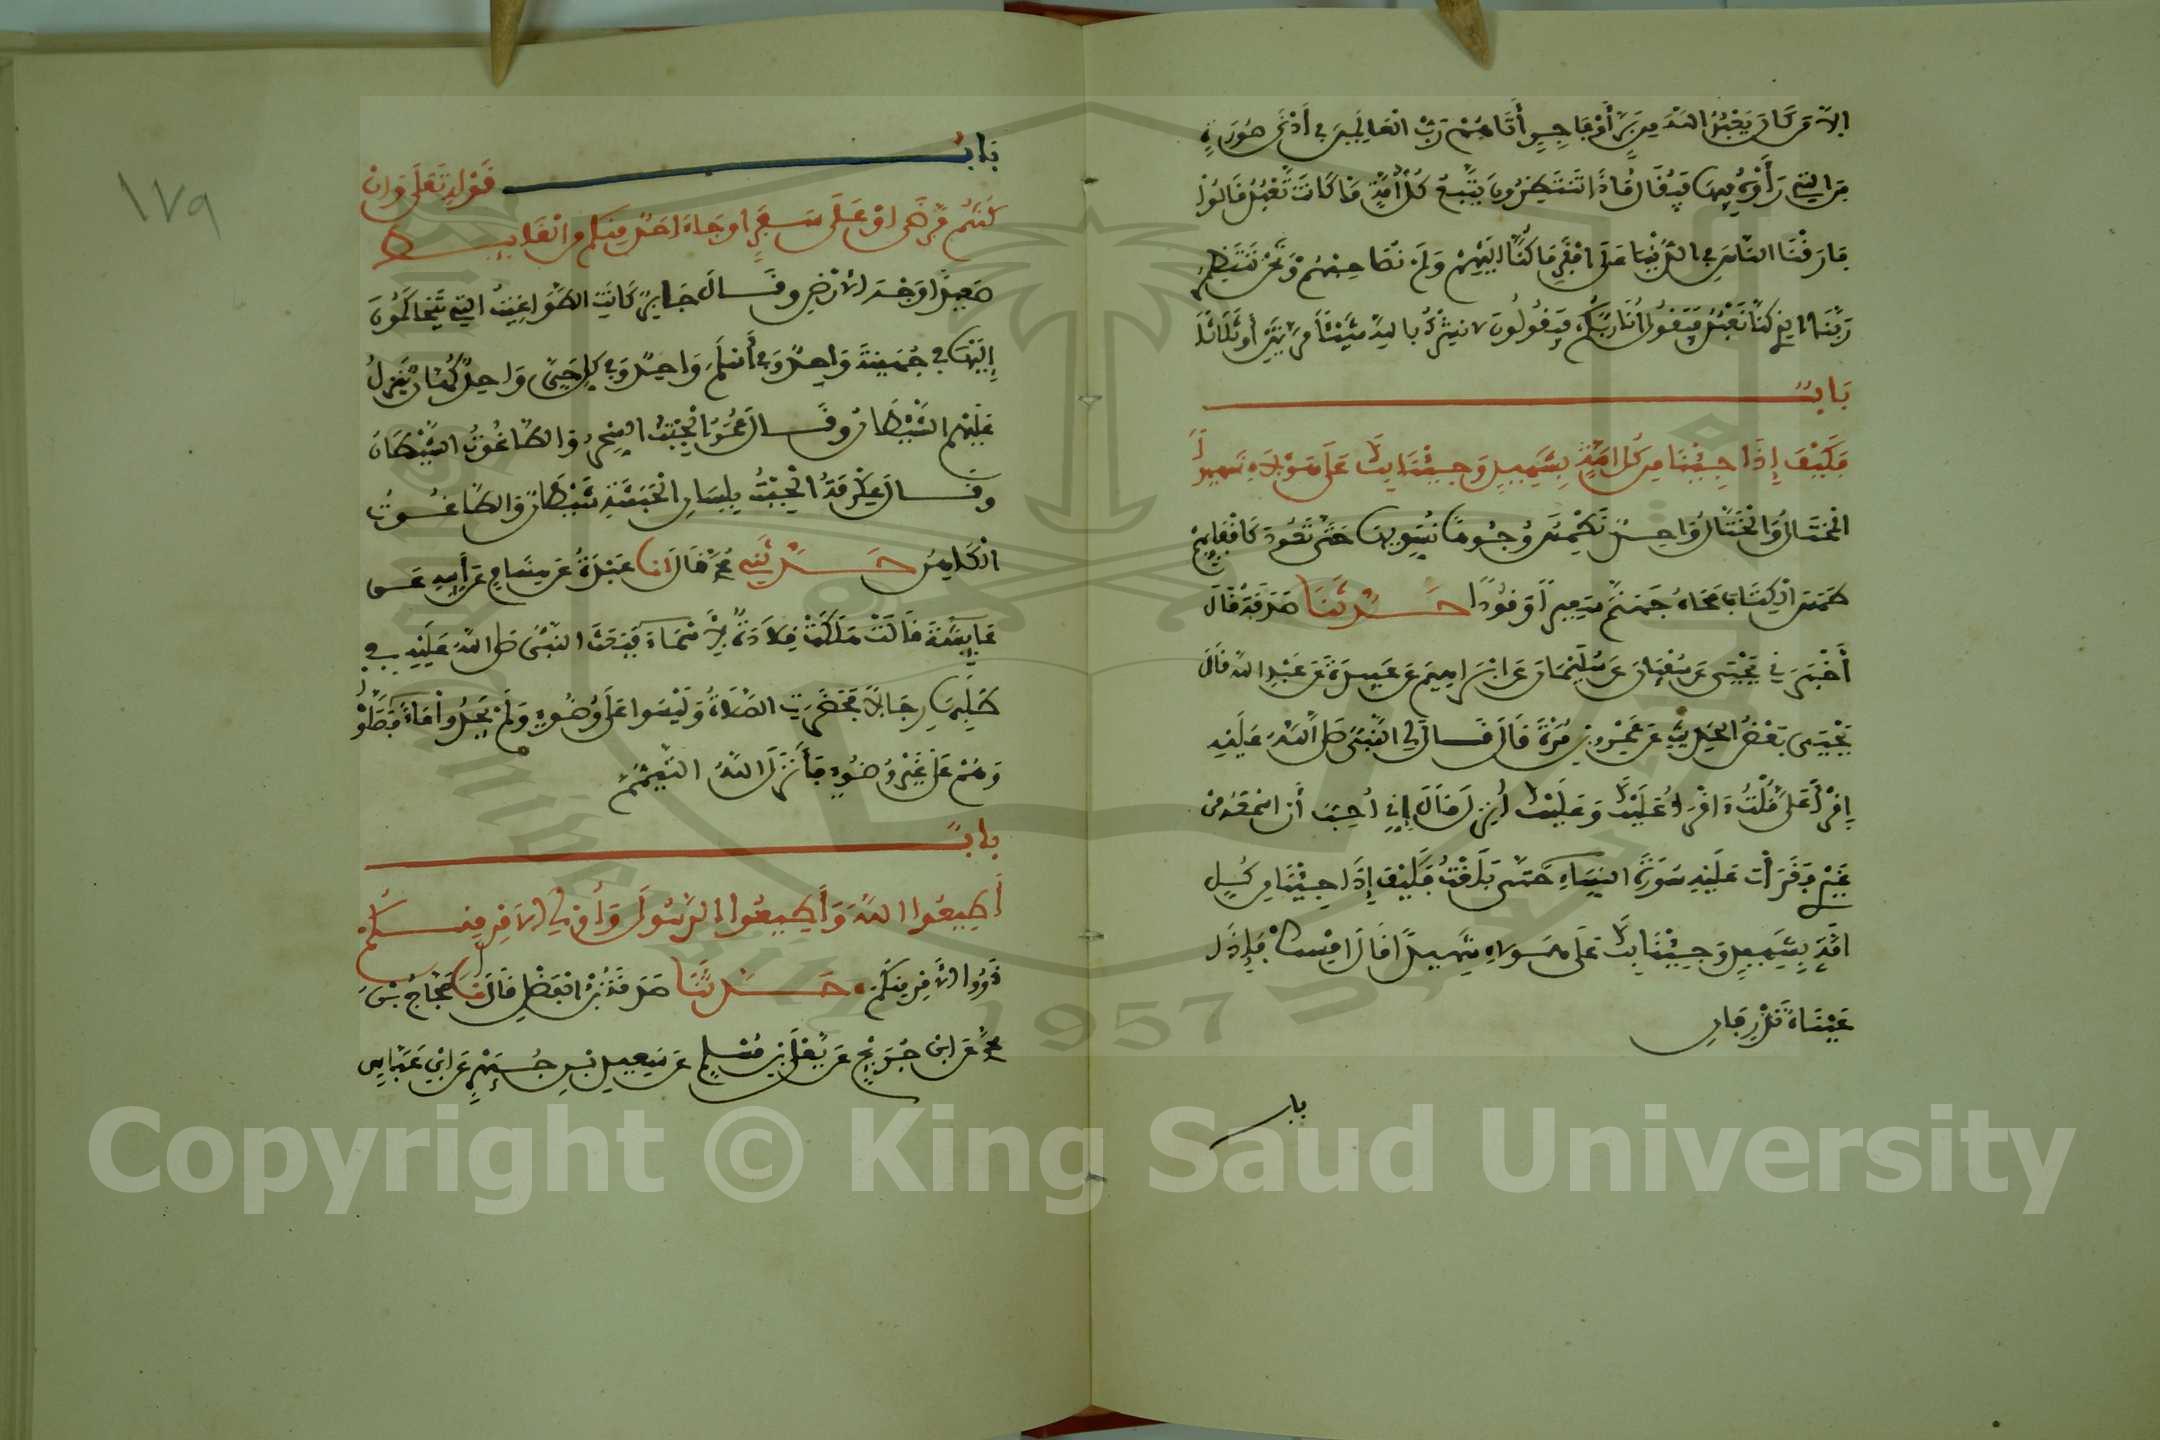 إلا من كان يعبد الله من بر أو فاجر أتاهم رب العالمين في أدنى صورة
من التي رأوه فيها فيقال ماذا تنتظرون يتبع كل أمة ما كانت تعبد قالوا
فارقنا الناس في الدنيا على افقر ما كنا اليهم ولم نصاحبهم ونحن ننتظر
ربنا الذي كنا نعبد فيقول أنا ربكم فيقولون لا نشرك بالله شيئا مرتين أو ثلاثا
باب
فكيف إذا جئنا من كل امة بشهيد وجئنا بك على هؤلاء شهيدا
المختال والختال واحد نطمس وجوها نسويها حتى تعود كأقفايهم
طمس الكتاب محاه جهنم سعيرا وقودا حدثنا صدقة قال
أخبرني يحيى عن سفيان عن سليمان عن ابراهيم عن عبيدة عن عبد الله قال
يحيى بعض الحديث عن عمرو بن مرة قال قال لي النبي صلى الله عليه
إقرأ علي قلت ءاقرأ عليك وعليك أنزل قال إني أحب أن اسمعه من
غيري فقرأت عليه سورة النساء حتى بلغت فكيف إذا جئنا من كل
امة بشهيد وجئنا بك على هؤلاء شهيدا قال امسك فإذا
عيناه تذرفان
باب
١٧٩
باب قوله تعلى وان
كنتم مرضى او على سفر او جاء احد منكم من الغايط
صعيدا وجه الأرض وقال جابر كانت الطواغيت التي يتحاكمون
إليها في جهينة واحد وفي أسلم واحد وفي كل حي واحد كهان ينزل
عليهم الشيطان وقال عمر الجبت السحر والطاغوت الشيطان
وقال عكرمة الجبت بلسان الحبشة شيطان والطاغوت
الكاهن حدثني محمد قال انا عبدة عن هشام عن أبيه عن
عايشة قالت هلكت قلادة لأسماء فبعث النبي صلى الله عليه في
طلبها رجالا فحضرت الصلاة وليسوا على وضوء ولم يجدوا ماء فصلوا
وهم على غير وضوء فأنزل الله التيمم
باب
أطيعوا الله وأطيعوا الرسول وأولي الامر منكم
ذوي الامر منكم حدثنا صدقة بن الفضل قال نا حجاج بن
محمد عن ابن جريج عن يعلى بن مسلم عن سعيد بن جبير عن ابن عباس
Copyright © King Saud University
1957